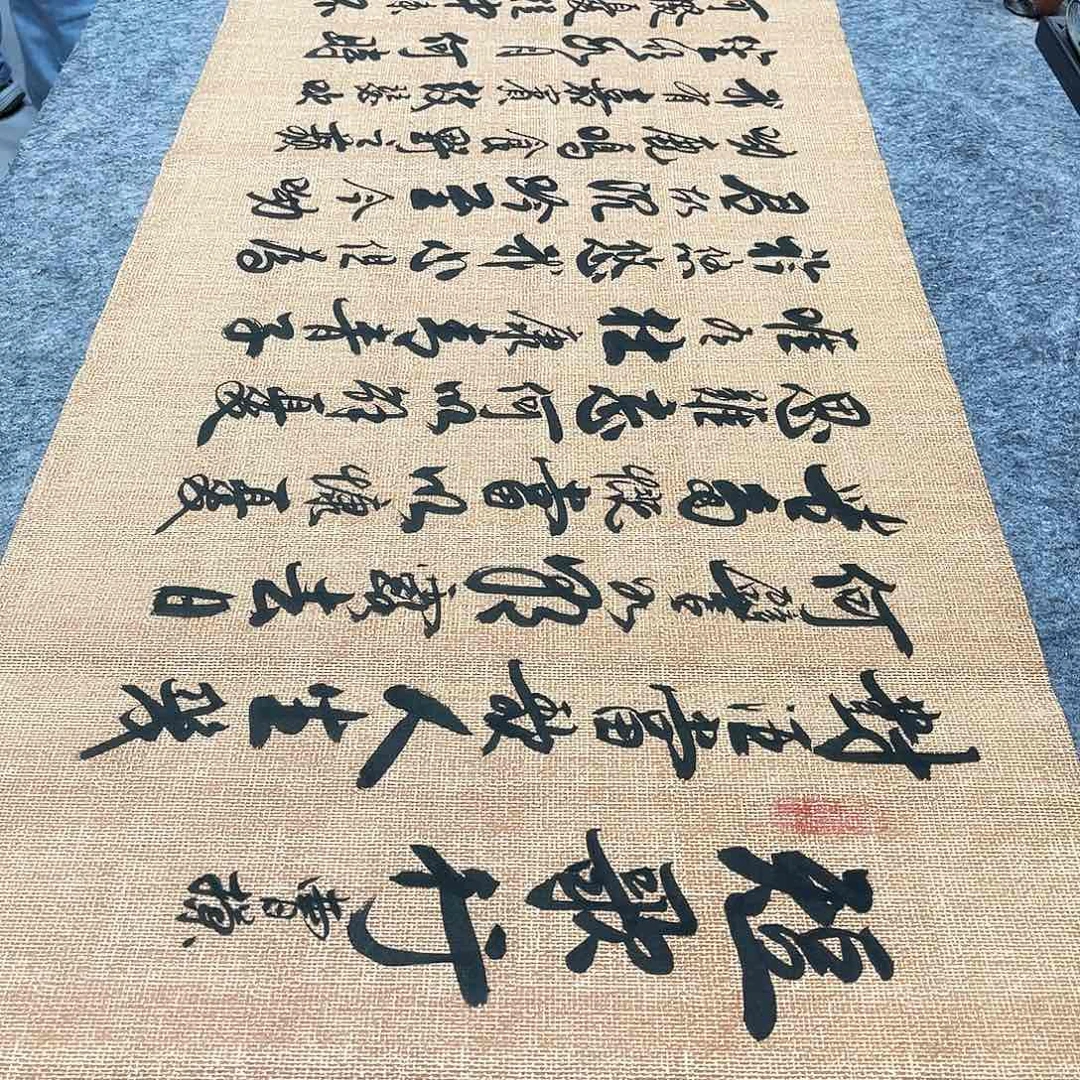 短歌行 曹操
對酒當歌人生幾
何譬如朝露去日
苦多慨當以慷憂
思難忘何以解憂
唯有杜康青青子
衿悠悠我心但為
君故沉吟至今呦
呦鹿鳴食野之蘋
我有嘉賓鼓瑟吹
笙明明如月何時
可掇憂從中來不